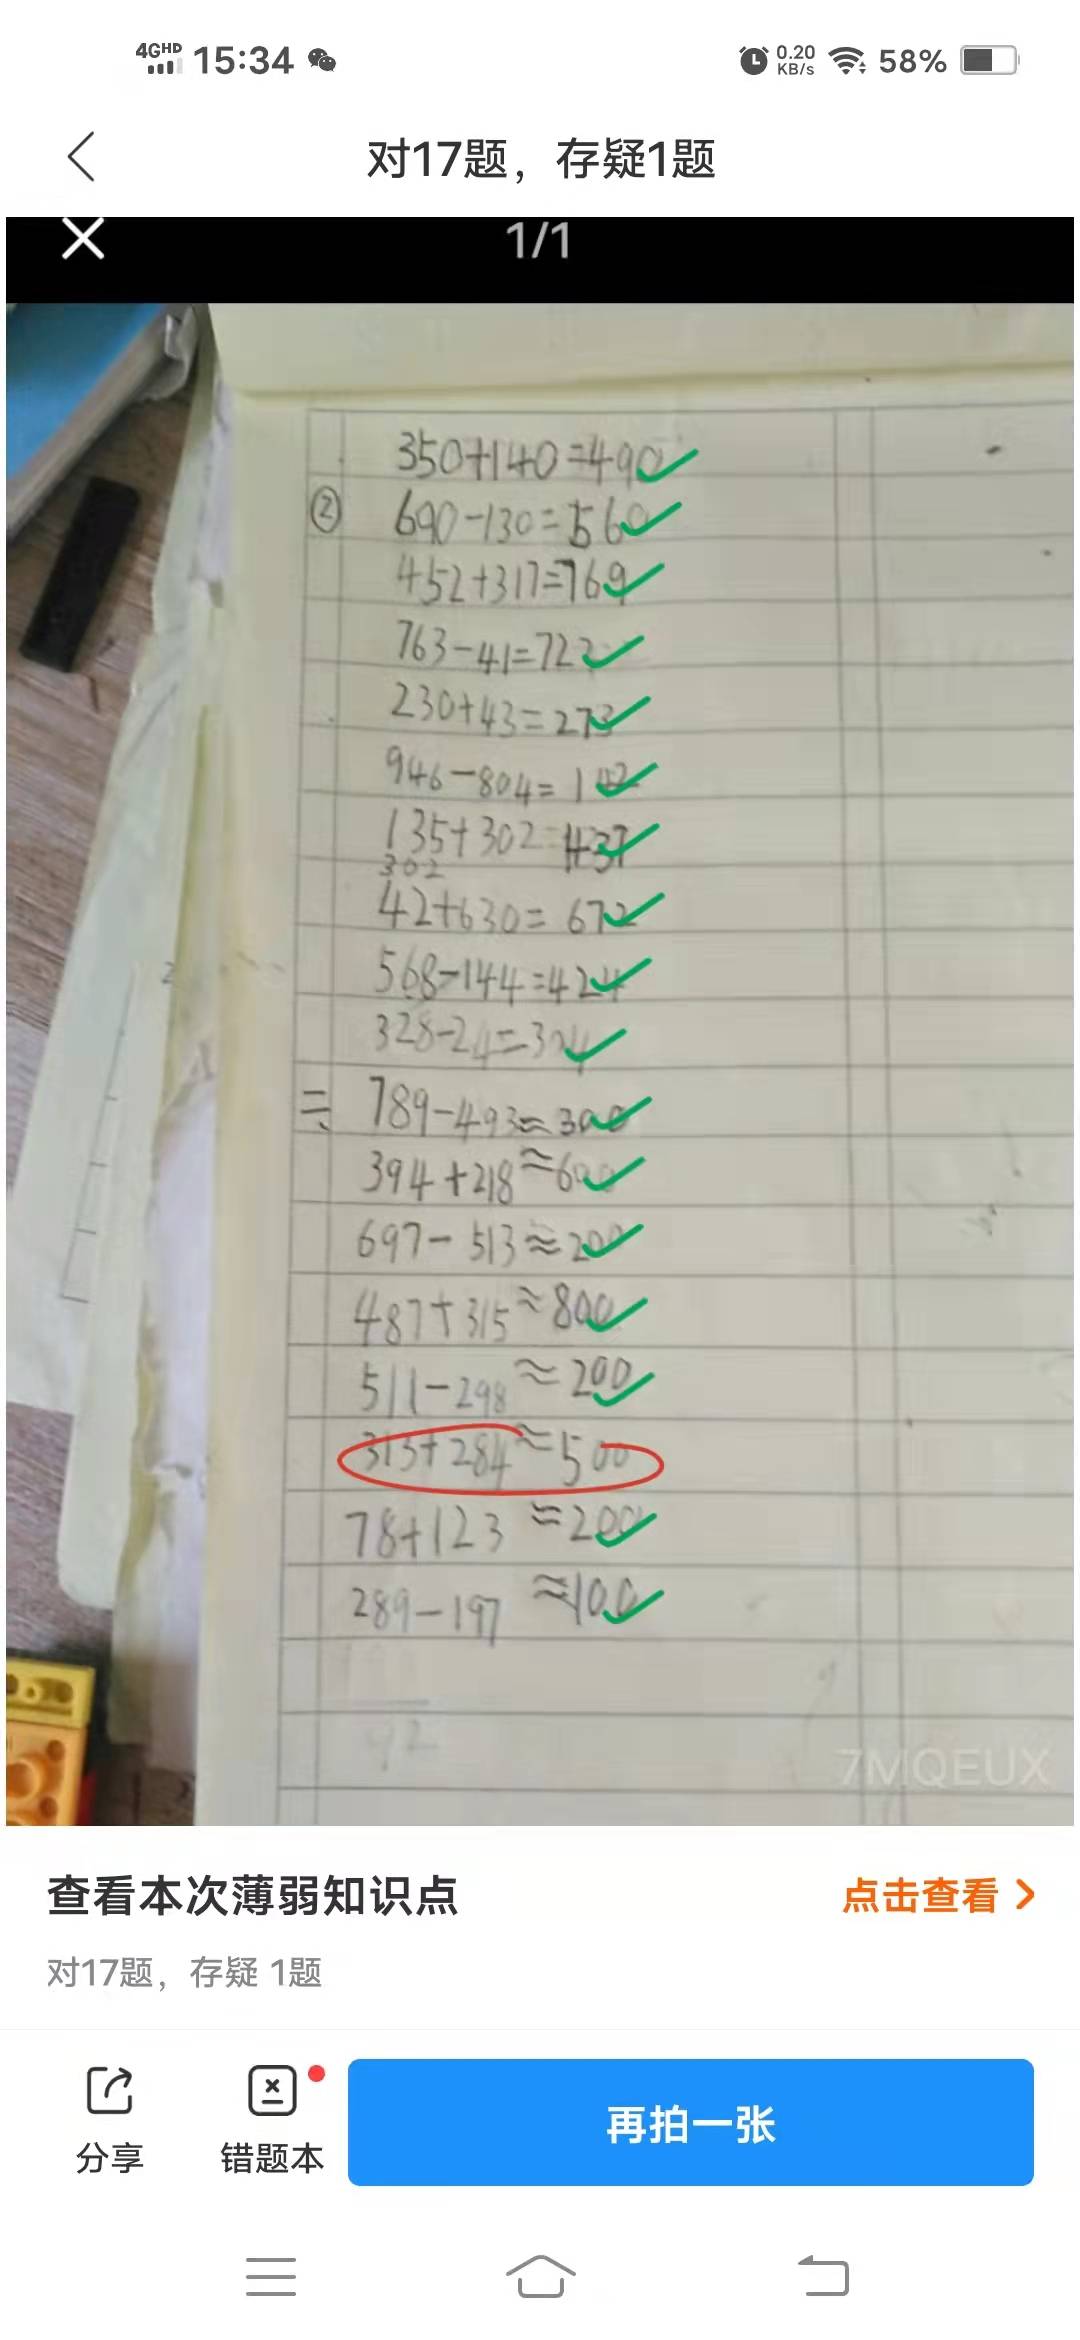 4GHD 15:34 0.20 KB/s 58%
对17题，存疑1题
1/1
350+140=490
② 690-130=560
452+317=769
763-41=722
230+43=273
946-804=142
135+302=437
302
42+630=672
568-144=424
328-24=304
二、 789-493≈300
394+218≈600
697-513≈200
487+315≈800
511-298≈200
313+284≈500
78+123≈200
289-197≈100
7MQEUX
查看本次薄弱知识点
点击查看
对17题，存疑 1题
分享
错题本
再拍一张